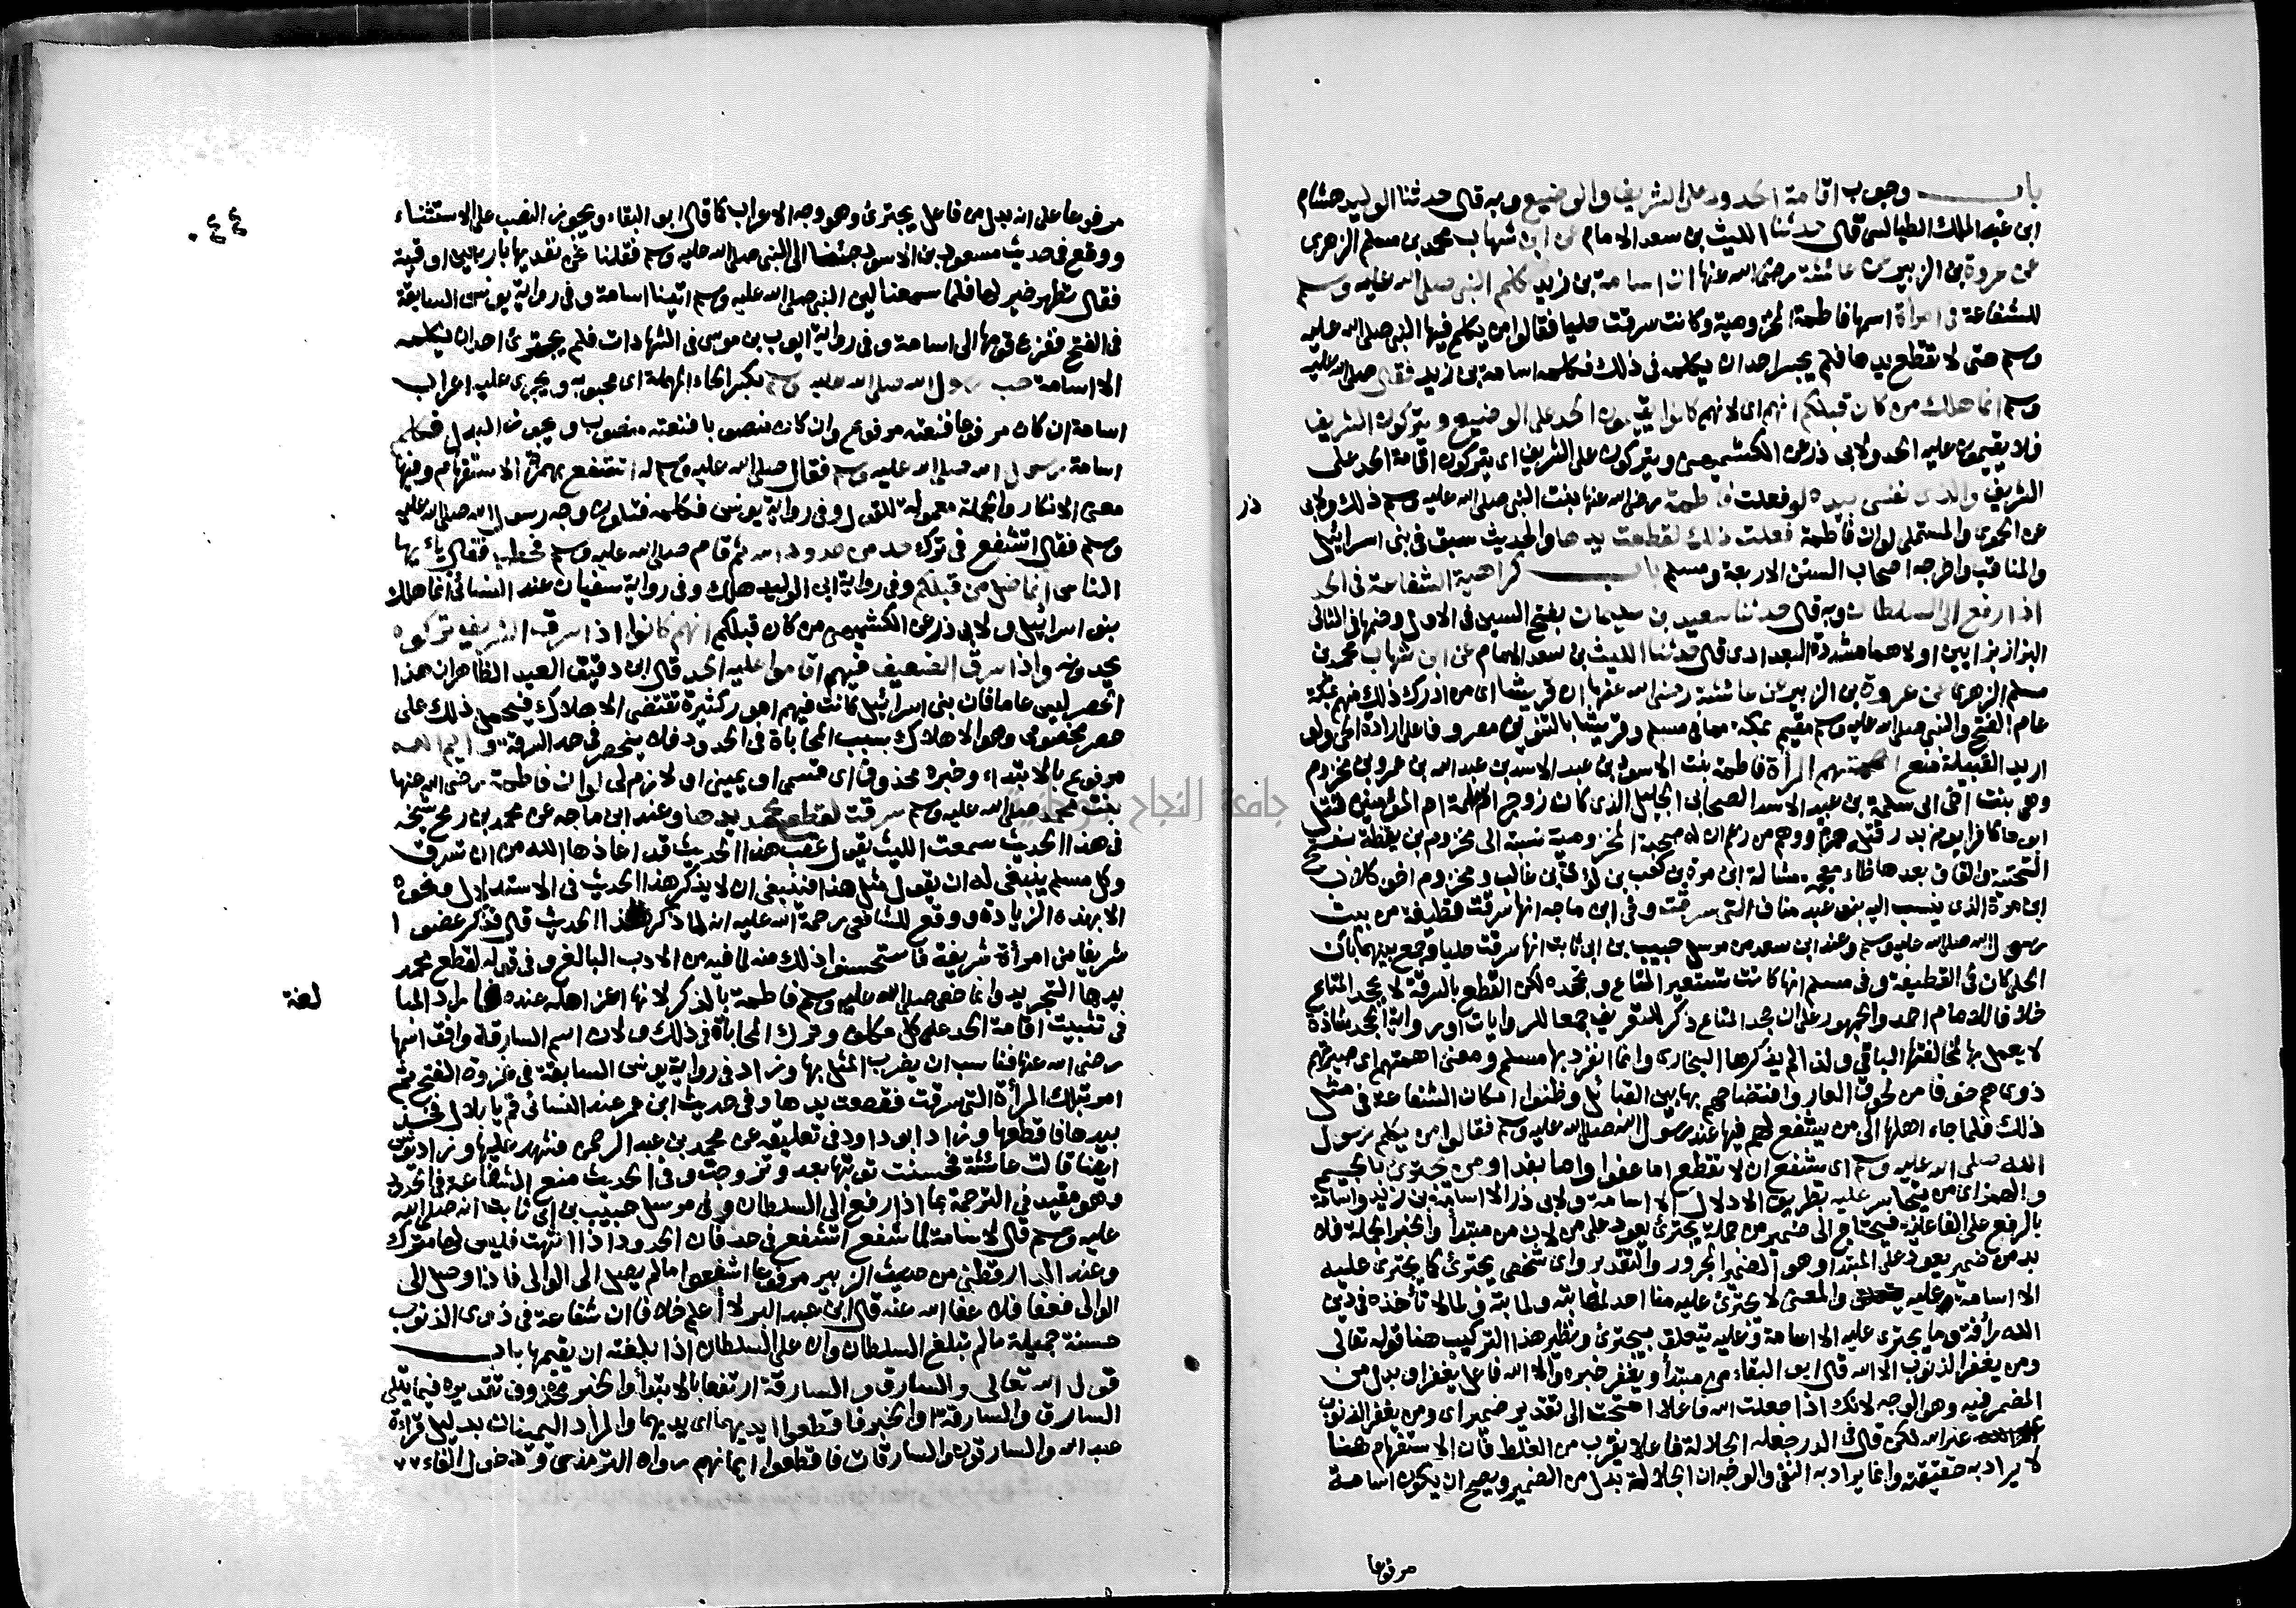 باب وجوب اقامة الحدود على الشريف والوضيع وبه قال حدثنا الوليد هشام
ابن عبد الملك الطيالسي قال حدثنا الليث بن سعد الامام عن ابن شهاب محمد بن مسلم الزهري
عن عروة بن الزبير عن عائشة رضى الله عنها ان اسامة بن زيد كلم النبي صلى الله عليه وسلم
للشفاعة في امرأة اسمها فاطمة المخزومية وكانت سرقت حليا فقالوا من يكلم فيها النبي صلى الله عليه
وسلم حتى لا تقطع يدها فلم يجسر احد ان يكلمه في ذلك فكلمه اسامة بن زيد فقال صلى الله عليه
وسلم انما هلك من كان قبلكم انهم اى لانهم كانوا يقيمون الحد على الوضيع ويتركون الشريف
فلا يقيمون عليه الحد ولابي ذر عن الكشميهني ويتركون على الشريف اى يتركون اقامة الحد على
الشريف والذى نفسى بيده لو فعلت فاطمة رضى الله عنها بنت النبي صلى الله عليه وسلم ذلك ولابي
ذر
عن الحموى والمستملى لو ان فاطمة فعلت ذلك لقطعت يدها والحديث سبق في بنى اسرائيل
والمناقب واخرجه اصحاب السنن الاربعة ومسلم باب كراهية الشفاعة في الحد
اذا رفع الى السلطان وبه قال حدثنا سعيد بن سليمان بفتح السين في الاول وضمها في الثاني
البزاز بزايين اولاهما مشددة البغدادى قال حدثنا الليث بن سعد الامام عن ابن شهاب محمد بن
مسلم الزهرى عن عروة بن الزبير عن عائشة رضى الله عنها ان قريشا اى من ادرك ذلك منهم بمكة
عام الفتح والنبي صلى الله عليه وسلم مقيم بمكة مما في مسلم وقريشا بالتنوين مصروفا على ارادة الحى ولو
اريد القبيلة منع اهمتهم المرأة فاطمة بنت الاسود بن عبد الاسد بن عبد الله بن عمرو بن مخزوم
وهي بنت اخى ابى سلمة بن عبد الاسد الصحابي الجليل الذى كان زوج ام سلمة ام المؤمنين قتل
ابوها كافرا يوم بدر قتله حمزة ووهم من زعم ان له صحبة المخزومية نسبة الى مخزوم بن يقظة بفتح
التحتية والقاف بعدها ظاء معجمة مشالة ابن مرة بن كعب بن لؤى بن غالب ومخزوم اخو كلاب
ابن مرة الذى ينسب اليه بنو عبد مناف التى سرقت وفي ابن ماجه انها سرقت قطيفة من بيت
رسول الله صلى الله عليه وسلم وعند ابن سعد من مرسل حبيب بن ابى ثابت انها سرقت حليا وجمع بينهما بان
الحلى كان في القطيفة وفي مسلم انها كانت تستعير المتاع وتجحده لكن القطع بالسرقة لا بجحد المتاع
خلافا للامام احمد والجمهور على ان جحد المتاع ذكر للتعريف جمعا للروايات او رواية الجحد شاذة
لا يعمل بها لمخالفتها الباقي ولذا لم يذكرها البخارى وانما انفرد بها مسلم ومعنى اهمتهم اى صيرتهم
ذوى هم خوفا من لحوق العار وافتضاحهم بها بين القبائل وظنوا امكان الشفاعة في مثل
ذلك فلما جاء اهلها الى من يشفع لهم فيها عند رسول الله صلى الله عليه وسلم فقالوا من يكلم رسول
الله صلى الله عليه وسلم اى يشفع ان لا تقطع اما عفوا واما بفداء ومن يجترئ بالجيم
والهمز اى من يتجاسر عليه بطريق الادلال الا اسامة ولابى ذر الا اسامة بن زيد واسامة
بالرفع على الفاعلية فيحتاج الى ضمير من جملة يجترئ يعود على من لان من مبتدأ والخبر الجملة فلا
بد من ضمير يعود على المبتدا وهو الضمير المجرور والتقدير واى شخص يجترئ كما يجترئ عليه
الا اسامة وعليه والمعنى لا يجترئ عليه منا احد لمهابته ولما يته في لما لا تأخذه في دين
الله رأفة وما يجترى عليه الا اسامة وعليه يتعلق بيجترئ ونظير هذا التركيب هنا قوله تعالى
ومن يغفر الذنوب الا الله قال ابو البقاء من مبتدأ ويغفر خبره والا الله فاعل يغفر او بدل من
المضمر فيه وهو الوجه لانك اذا جعلت الله فاعلا احتجت الى تقدير ضمير اى ومن يغفر الذنوب
غير الله لكن قال في الدر جعله الجلالة فاعلا يقرب من الغلط فان الاستفهام هنا
لا يراد به حقيقته وانما يراد به النفى والوجه ان الجلالة بدل من الضمير ويصح ان يكون اسامة
مرفوعا
٤٤٠
مرفوعا على انه بدل من فاعل يجترئ وهو وجه الاعراب كما قال ابو البقاء ويجوز النصب على الاستثناء
ووقع في حديث مسعود بن الاسود جئنا الى النبي صلى الله عليه وسلم فقلنا نحن نفديها باربعين اوقية
فقال تطهر خير لها فلما سمعنا لين النبي صلى الله عليه وسلم اتينا اسامة وفي رواية يونس السابقة
في الفتح ففزع قومها الى اسامة وفي رواية ايوب بن موسى في الشهادات فلم يجترئ احد ان يكلمه
الا اسامة حب رسول الله صلى الله عليه وسلم بكسر الحاء المهملة اى محبوبه ويجرى عليه اعراب
اسامة ان كان مرفوعا فنعته مرفوع وان كان منصوبا فنعته منصوب ويجوز البدل فكلم
اسامة رسول الله صلى الله عليه وسلم فقال صلى الله عليه وسلم له اتشفع بهمزة الاستفهام وفيها
معنى الانكار والجملة معمولة للقول وفي رواية يونس فكلمه فتلون وجه رسول الله صلى الله عليه
وسلم فقال اتشفع في ترك حد من حدود الله ثم قام صلى الله عليه وسلم فخطب فقال يا ايها
الناس انما ضل من قبلكم وفي رواية ابى الوليد هلك وفي رواية سفيان عند النسائي انما هلك
بنو اسرائيل ولابى ذر عن الكشميهني من كان قبلكم انهم كانوا اذا سرق الشريف تركوه
يحدونه واذا سرق الضعيف فيهم اقاموا عليه الحد قال ابن دقيق العيد الظاهر ان هذا
الحصر ليس عاما فان بنى اسرائيل كانت فيهم امور كثيرة تقتضى الاهلاك فيحمل ذلك على
حصر مخصوص وهو الاهلاك بسبب المحاباة في الحدود فلا ينحصر في حد السرقة وايم الله
مرفوع بالابتداء وخبره محذوف اى قسمى او يمينى او لازم لى لو ان فاطمة رضى الله عنها
بنت محمد صلى الله عليه وسلم سرقت لقطع محمد يدها وعند ابن ماجه عن محمد بن رمح شيخه
في هذا الحديث سمعت الليث يقول عقب هذا الحديث قد اعاذها الله من ان تسرق
وكل مسلم ينبغى له ان يقول مثل هذا فينبغى ان لا يذكر هذا الحديث في الاستدلال ونحوه
الا بهذه الزيادة ووقع للشافعى رحمة الله عليه انه لما ذكر هذا الحديث قال فذكر عضوا
شريفا من امرأة شريفة فاستحسنوا ذلك منه لما فيه من الادب البالغ وفي قوله لقطع محمد
يدها التجريد وانما خص صلى الله عليه وسلم فاطمة بالذكر لانها اعز اهله عنده فاراد المبا
لغة
في تثبيت اقامة الحد على كل مكلف وترك المحاباة في ذلك ولان اسم السارقة وافق اسمها
رضى الله عنها فناسب ان يضرب المثل بها وزاد في رواية يونس السابقة في غزوة الفتح ثم
امر بتلك المرأة التى سرقت فقطعت يدها وفي حديث ابن عمر عند النسائي قم يا بلال فخذ
بيدها فاقطعها وزاد ابو داود في تعليقه عن محمد بن عبد الرحمن فشهد عليها وزاد يونس
ايضا قالت عائشة فحسنت توبتها بعد وتزوجت وفي الحديث منع الشفاعة في الحدود
وهو مقيد في الترجمة بما اذا رفع الى السلطان وفي مرسل حبيب بن ابى ثابت انه صلى الله
عليه وسلم قال لاسامة لما شفع اتشفع في حد فان الحدود اذا انتهت فليس لها مترك
وعند الدارقطني من حديث الزبير مرفوعا اشفعوا ما لم يصل الى الوالى فاذا وصل الى
الوالى فعفا فلا عفا الله عنه قال ابن عبد البر لا اعلم خلافا ان شفاعة في ذوى الذنوب
حسنة جميلة ما لم تبلغ السلطان وان على السلطان اذا بلغته ان يقيمها باب
قول الله تعالى والسارق والسارقة ارتفعا بالابتدا والخبر محذوف تقديره فيما يتلى
السارق والسارقة او الخبر فاقطعوا ايديهما اى يديهما والمراد اليمينان بدليل قراءة
عبد الله والسارقون والسارقات فاقطعوا ايمانهم رواه الترمذى ودخول الفاء
جامعة النجاح الوطنية